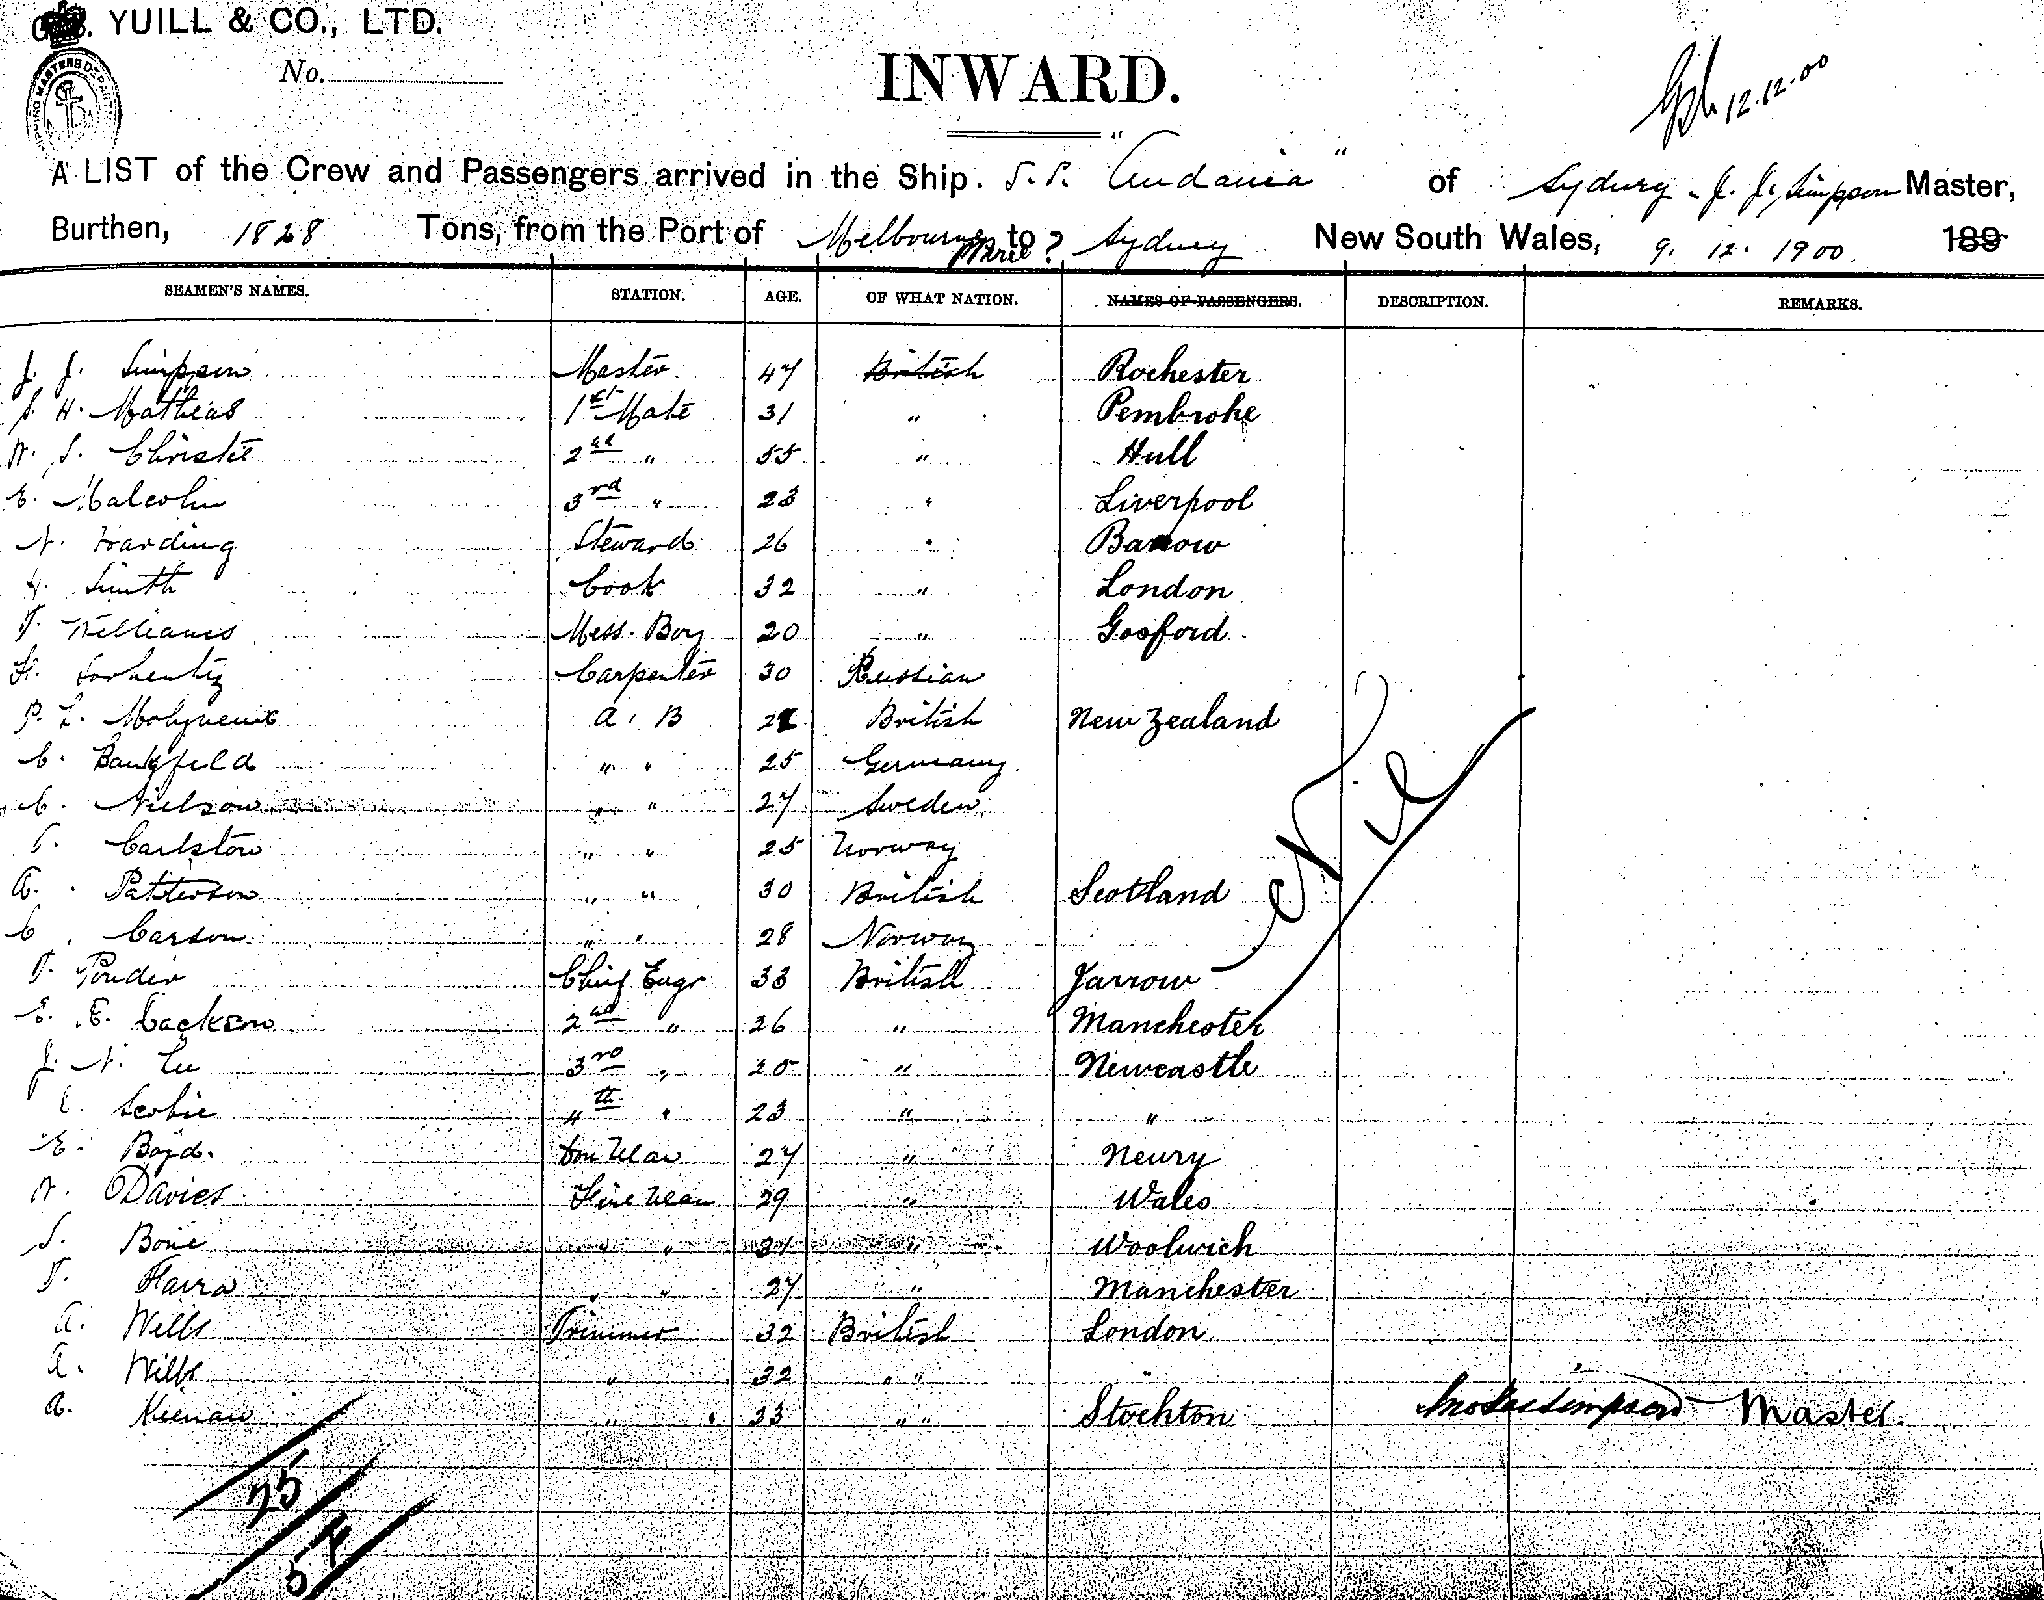 YUILL & CO., LTD.
No.
INWARD.
12.12.00
A LIST of the Crew and Passengers arrived in the Ship. S.S. " " of Sydney J. J. Simpson Master,
Burthen, 1828 Tons, from the Port of Melbourne to Sydney New South Wales, 9. 12. 1900. 189
SEAMEN'S NAMES. STATION. AGE. OF WHAT NATION. NAMES OF PASSENGERS. DESCRIPTION. REMARKS.
J. J. Simpson Master 47 British Rochester
S. H. Mathias 1st Mate 31 " Pembroke
W. S. Christie 2nd " 55 " Hull
E. Malcolm 3rd " 23 " Liverpool
Harding Steward 26 " Barrow
H. Smith Cook 32 " London
T. Williams Mess. Boy 20 " Gosford
H. Carpenter 30 Russian
P. L. Molyneux A. B British New Zealand
C. " " 25 Germany
C. Nielson " " 27 Sweden
" " 25 Norway
A. Patterson " " 30 British Scotland
C. Carson " " 28 Norway
T. Ponder Chief Engr 33 British Jarrow
E. E. 2nd " 26 " Manchester
J. N. Lee 3rd " 25 " Newcastle
Scobie "th " 23 " "
E. Boyd. Don Man 27 " Newry
W. Davies Fire Man 29 " Wales
S. Bone " " 31 " Woolwich
T. Harra " " 27 " Manchester
A. Wills Trimmer 32 British London
A. Wills " 32 " " "
A. Keenan " " 33 " " Stockton
Nil
Simpson Master.
25